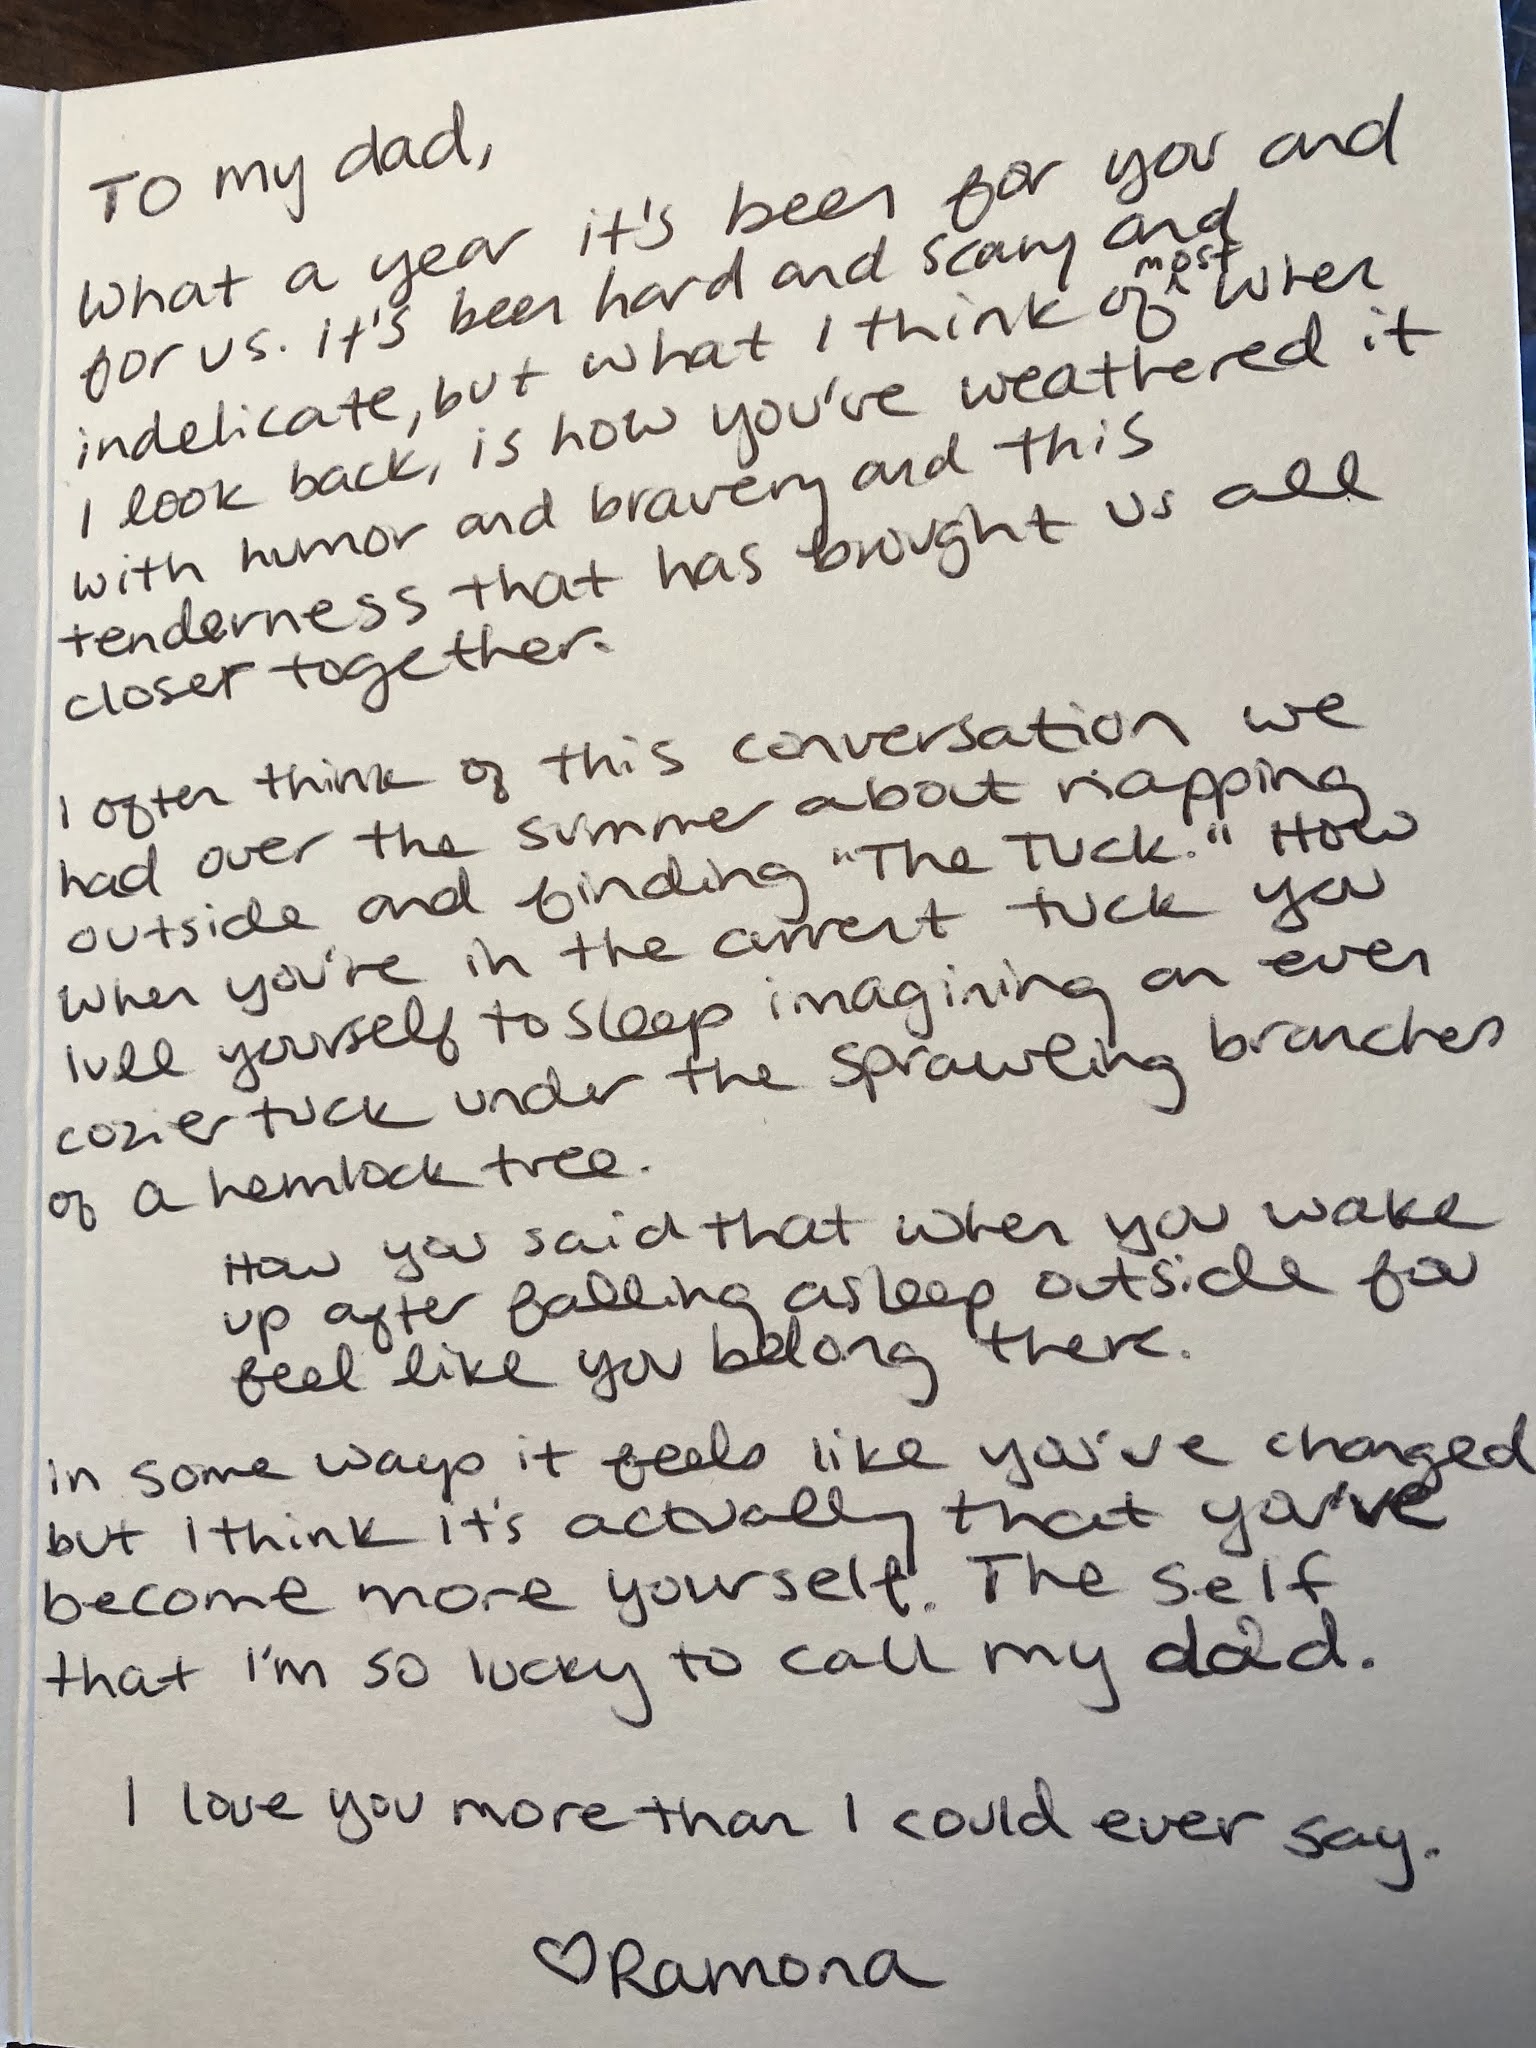 To my dad,
What a year it's been for you and
for us. It's been hard and scary and
indelicate, but what I think of most when
I look back, is how you've weathered it
with humor and bravery and this
tenderness that has brought us all
closer together.
I often think of this conversation we
had over the summer about napping
outside and finding "The Tuck." How
when you're in the current tuck you
lull yourself to sleep imagining an even
cozier tuck under the sprawling branches
of a hemlock tree.
How you said that when you wake
up after falling asleep outside you
feel like you belong there.
In some ways it feels like you've changed
but I think it's actually that you've
become more yourself. The self
that I'm so lucky to call my dad.
I love you more than I could ever say.
♡Ramona